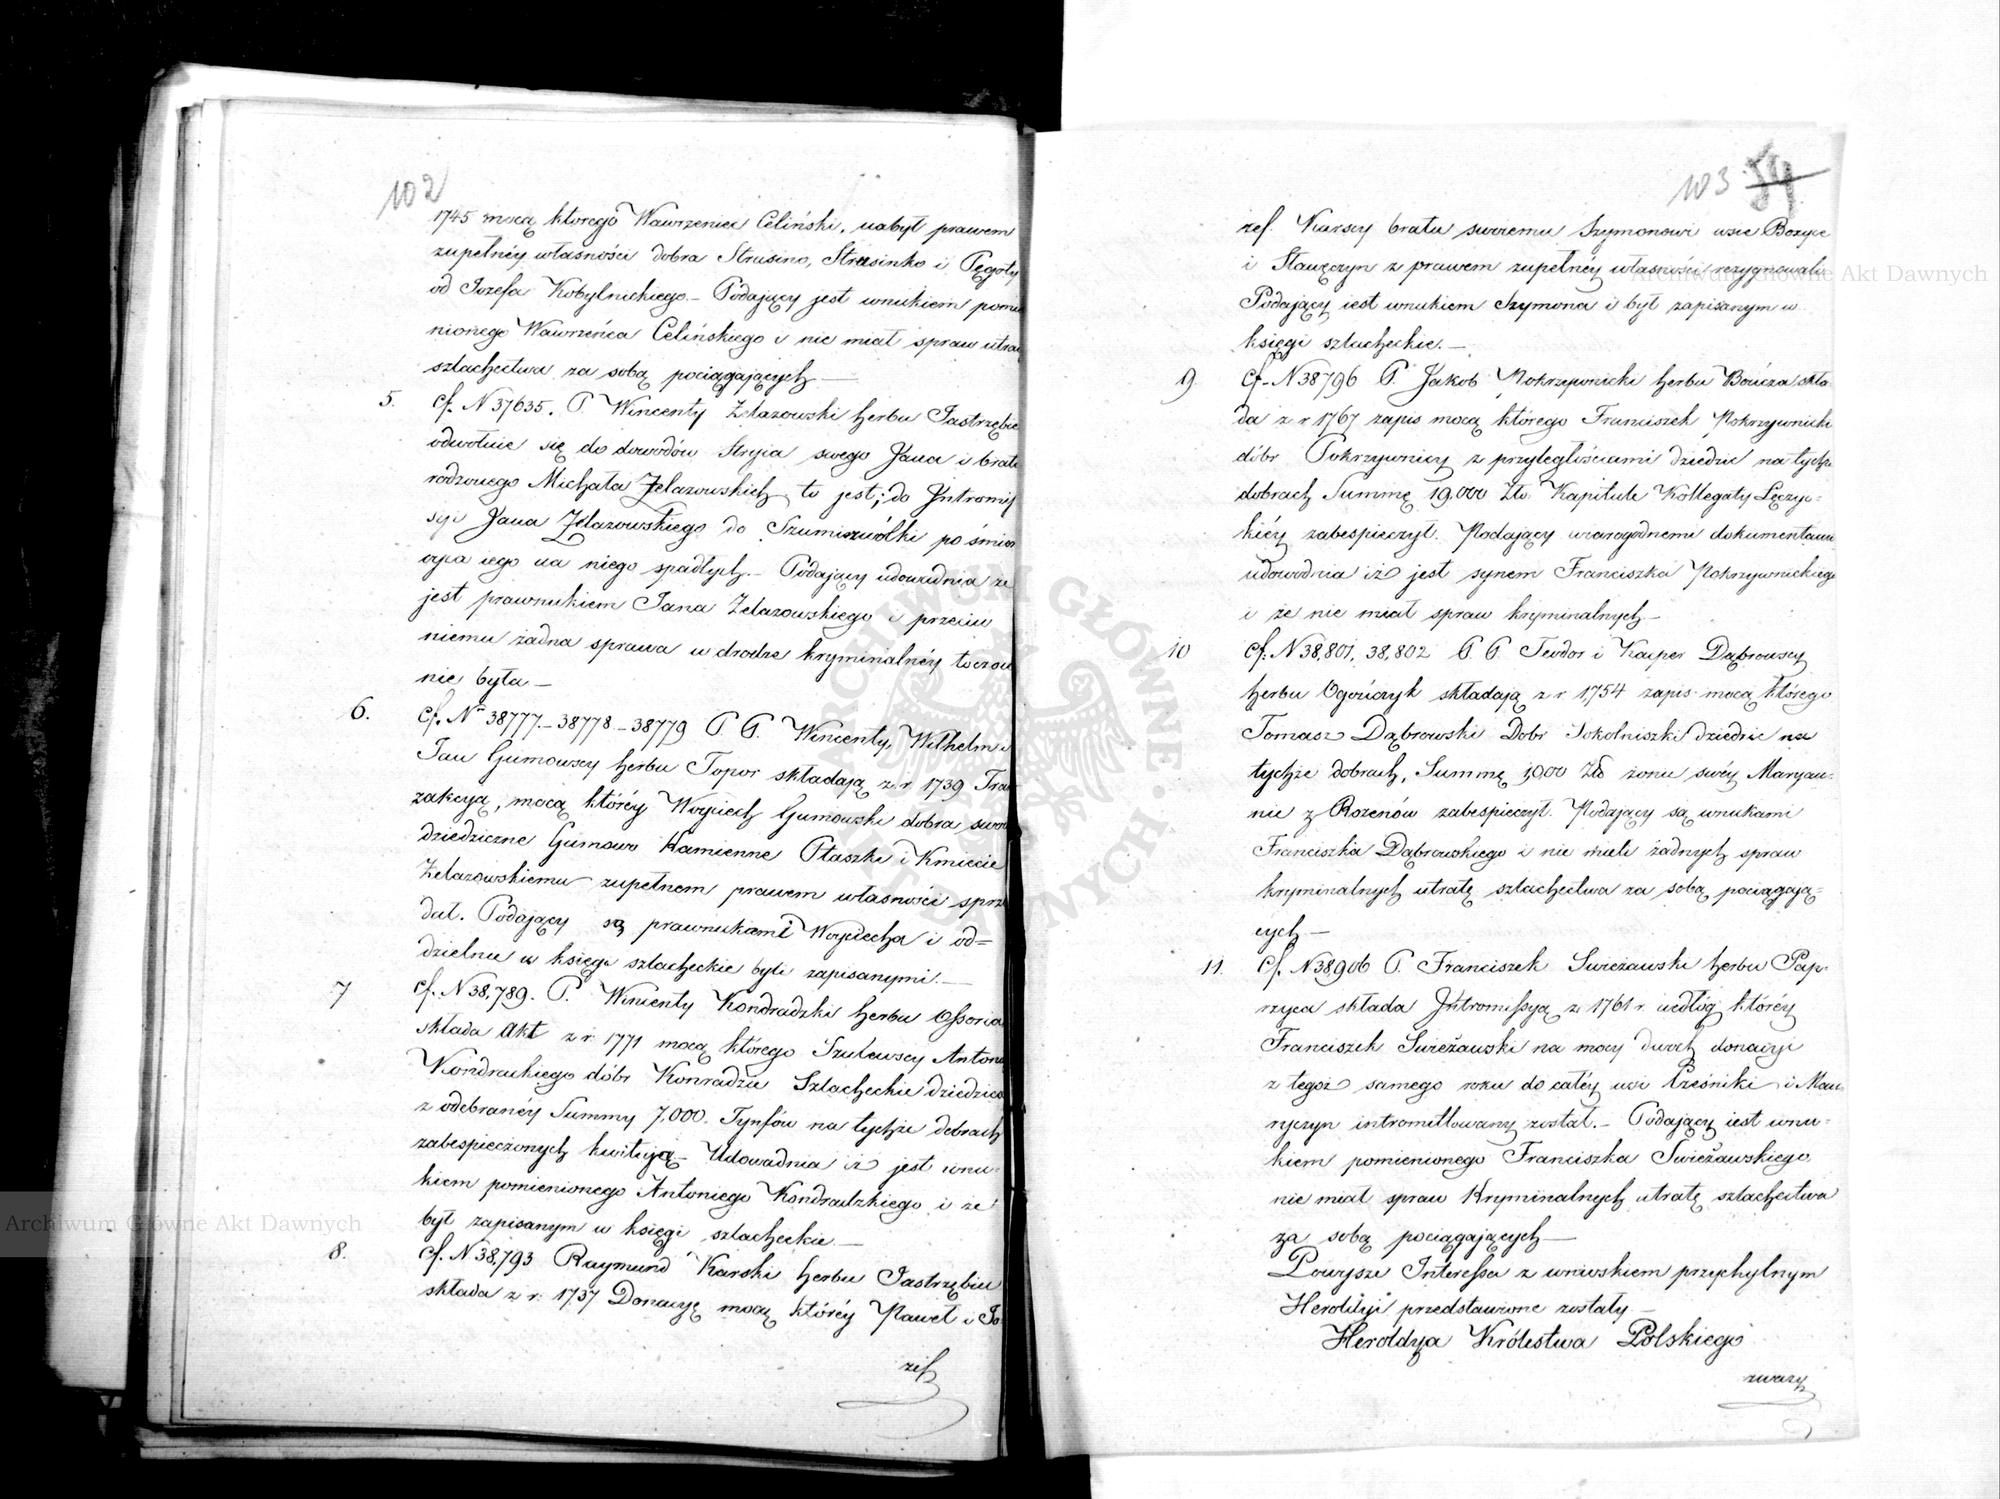 102
1745 mocą ktorego Wawrzeniec Celiński, nabył prawem
zupełnéy własności dobra Strusino, Strusinko i Pęgoty
od Jozefa Kobylnickiego. – Podaiący jest wnukiem pomie
nionego Wawrzeńca Celińskiego i nie miał spraw utra
szlachectwa za sobą pociągających –
5. cf. N 37635. P. Wincenty Zelazowski herbu Jastrzębiec
odwołuie się do dowodów Stryia swego Jana i brata
rodzonego Michała Zelazowskich, to jest; do Intromis
syi Jana Zelazowskiego do Szumiszwólki po śmierci
oyca iego na niego spadłych. – Podaiący udowadnia że
jest prawnukiem Jana Zelazowskiego i przeciw
niemu żadna sprawa w drodze kryminalnéy toczon
nie była –
6. cf. Nr 38777. – 38778 – 38779 P. P. Wincenty, Wilhelm i
Jan Gumowscy herbu Topor składaią z r. 1739 Tran
zakcyą, mocą któréy Woyciech Gumowski dobra swoie
dziedziczne Gumowo Kamienne Ptaszki i Kmiecie
Zelazowskiemu zupełnem prawem własności sprze
dał. Podaiący są prawnukami Woyciecha i od=
dzielnie w księgi szlacheckie byli zapisanymi. –
7 cf. N 38,789. P. Wincenty Kondradzki herbu Ossoria
składa Akt z r. 1771 mocą którego Szulewscy Antoni
Kondrackiego dóbr Konradzie Szlacheckie dziedzica
z odebranéy Summy 7,000. Tynfów na tychże dobrach
zabespieczonych kwituią – Udowadnia iż jest wnu=
kiem pomienionego Antoniego Kondradzkiego i że
był zapisanym w księgi szlacheckie –
8. cf. N 38,793 Raymund Karski herbu Jastrzębiec
składa z r. 1737 Donacyę mocą któréy Paweł i Jo
zef
103 54
zef. Karscy bratu swoiemu Szymonowi wsie Bozyce
i Stawęczyn z prawem zupełnéy własności rezygnowali
Podaiący iest wnukiem Szymona i był zapisanym w
księgi szlacheckie. –
9. cf. N 38796 P. Jakob Pokrzywnicki herbu Bończa skła
da z r 1767 zapis mocą którego Franciszek Pokrzywnicki
dóbr Pokrzywnicy z przyległościami dziedzic na tychże
dobrach Summę 19,000 Złt. Kapitule Kollegaty Łęczyc=
kiéy zabespieczył. Podaiący wiarogodnemi dokumentami
udowodnia iż jest synem Franciszka Pokrzywnickiego
i że nie miał spraw kryminalnych –
10 cf. N 38,801, 38,802 P. P. Teodor i Kacper Dąbrowscy
herbu Ogończyk składaią z r 1754 zapis mocą którego
Tomasz Dąbrowski Dobr Sokolniszki dziedzic na
tychże dobrach, Summę 1,000 Zło żonie swéy Maryan=
nie z Rozenów zabespieczył. Podaiący są wnukami
Franciszka Dąbrowskiego i nie mieli żadnych spraw
kryminalnych utratę szlachectwa za sobą pociągaią=
cych –
11. cf. N 38906 P. Franciszek Swieżawski herbu Pap=
rzyca składa Intromissyą z 1761 r. według któréy
Franciszek Swieżawski na mocy dwóch donacyi
z tegoż samego roku do całéy wsi Cześniki i Man
ryczyn intromittowany został. – Podaiący iest wnu=
kiem pomienionego Franciszka Swieżawskiego
nie miał spraw Kryminalnych utratę szlachectwa
za sobą pociągaiących –
Powyższe Interessa z wnioskiem przychylnym
Heroldyi przedstawione zostały –
Heroldya Królestwa Polskiego
zważy
Archiwum Główne Akt Dawnych
Archiwum Główne Akt Dawnych
ARCHIWUM GŁÓWNE AKT DAWNYCH